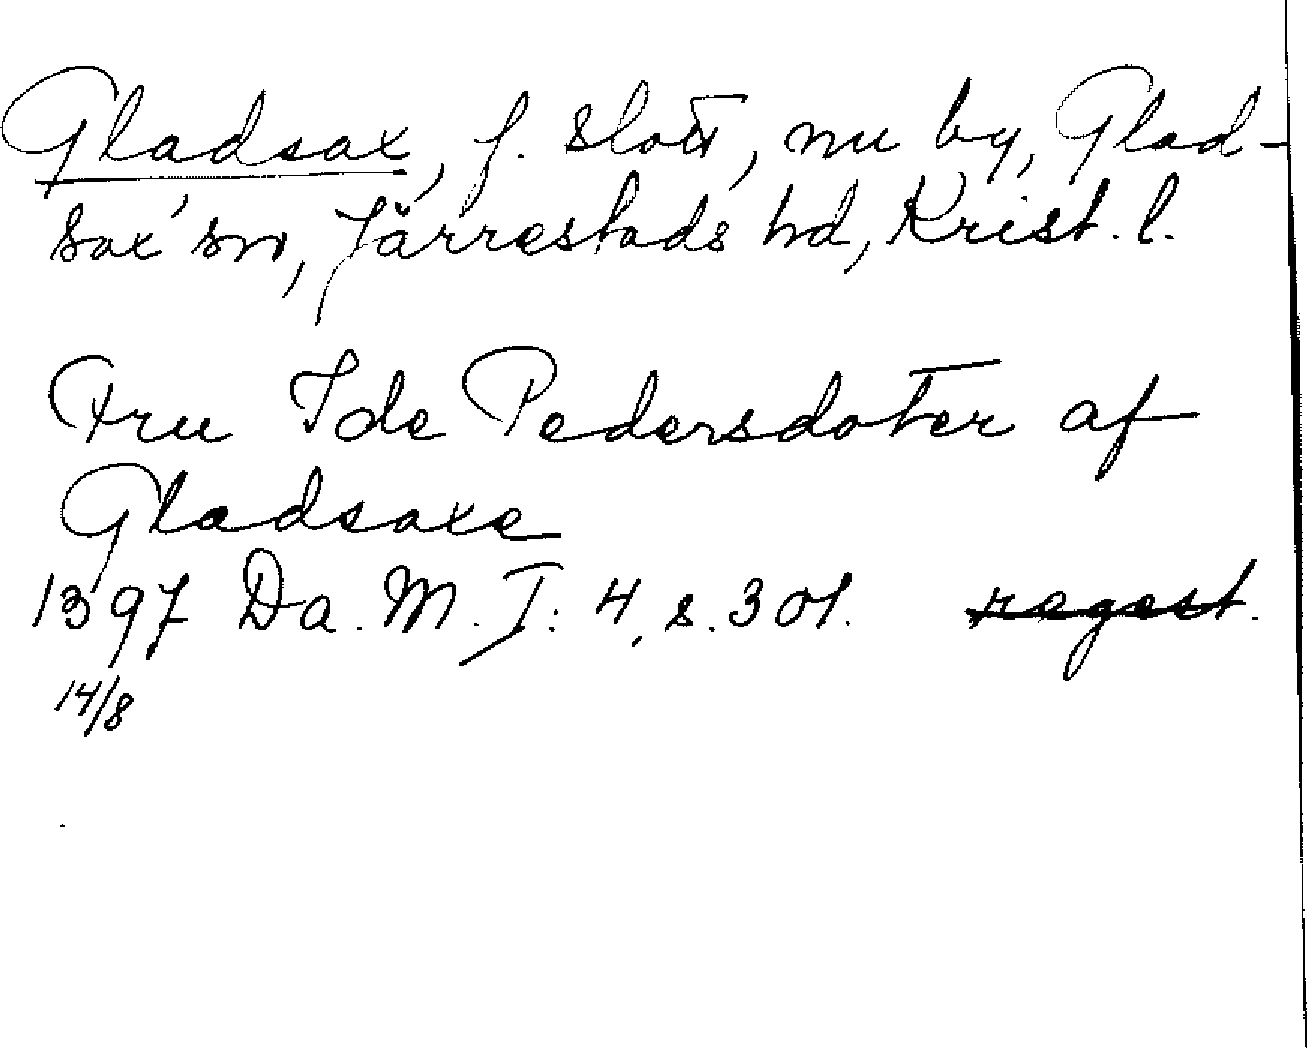 Gladsax, f. slott, nu by, Glad-
sax' sn, Järrestads hd, Krist. l.
Fru Ide Pedersdotter af
Gladsaxe
1397 Da. M. I: 4, s. 301. regest.
14/8